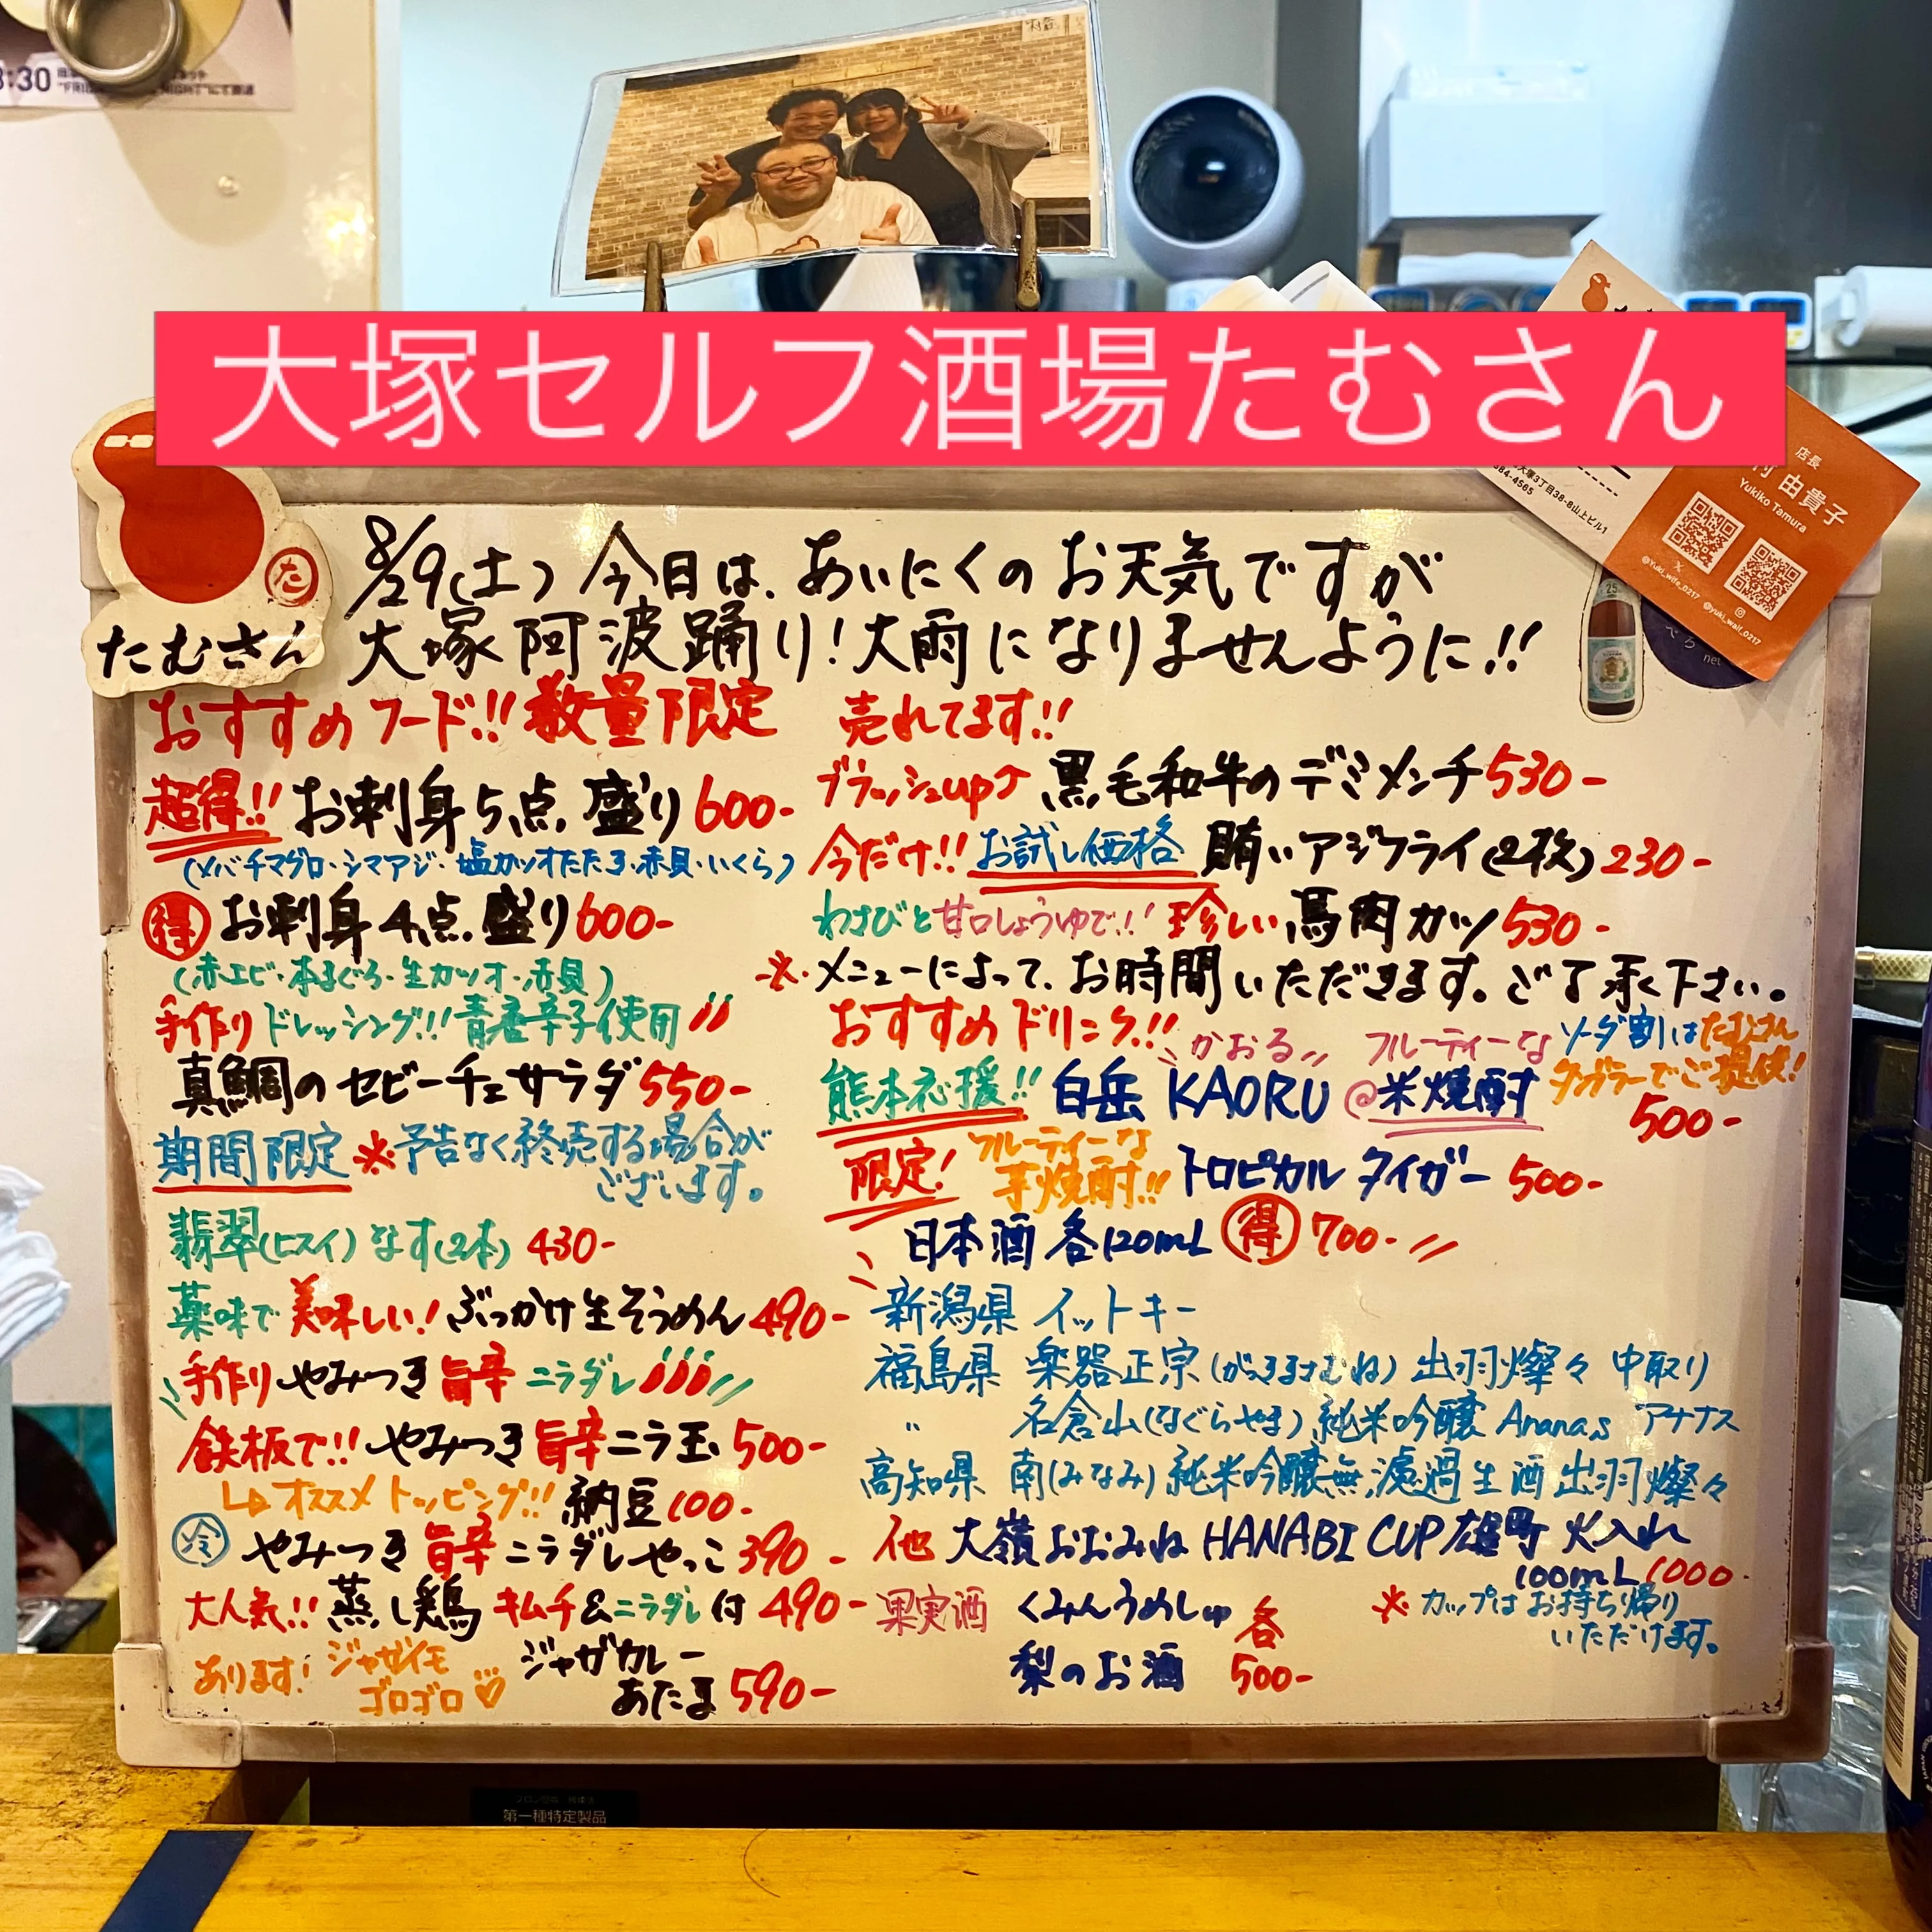 :30
大塚セルフ酒場たむさん
大塚3丁目38-8山上ビル1
384-4565
店長
村 由貴子
Yukiko Tamura
@Yuki_wife_0217
@yuki_waif_0217
net
25
た
たむさん
8/29(土) 今日は、あいにくのお天気ですが
大塚阿波踊り!大雨になりませんように!!
おすすめフード!!数量限定
超得!!お刺身5点盛り600-
(メバチマグロ・シマアジ・塩カツオたたき・赤貝・いくら)
得 お刺身4点盛り600-
(赤エビ・本まぐろ・生カツオ・赤貝)
手作りドレッシング!!青唐辛子使用
真鯛のセビーチェサラダ550-
期間限定 ※予告なく終売する場合が
ございます。
翡翠(ヒスイ)なす(2本) 430-
薬味で美味しい!ぶっかけ生そうめん490-
手作りやみつき旨辛ニラダレ
鉄板で!!やみつき旨辛ニラ玉500-
↳オススメトッピング!!納豆100-
冷 やみつき旨辛ニラダレやっこ390-
大人気!!蒸し鶏キムチ&ニラダレ付490-
あります!ジャガイモ
ゴロゴロ♡ ジャガカレー
あたま590-
売れてます!!
ブラッシュup↑黒毛和牛のデミメンチ530-
今だけ!!お試し価格 賄いアジフライ(2枚)230-
わさびと甘口しょうゆで!!珍しい馬肉カツ530-
※メニューによって、お時間いただきます。ご了承く下さい。
おすすめドリンク!!
かおる フルーティーな ソーダ割はたむさん
熊本応援!!白岳 KAORU @米焼酎 タンブラーでご提供!
500-
限定!フルーティーな
芋焼酎!!トロピカルタイガー 500-
日本酒各120mL 得 700-
新潟県 イットキー
福島県 楽器正宗(がっきまさむね)出羽燦々 中取り
〃 名倉山(なぐらやま)純米吟醸Ananasアナナス
高知県 南(みなみ)純米吟醸無濾過生酒出羽燦々
他 大嶺おおみねHANABI CUP雄町火入れ
100mL1000-
※カップはお持ち帰り
いただけます。
果実酒 くみんうめしゅ 各
梨のお酒 500-
第一種特定製品